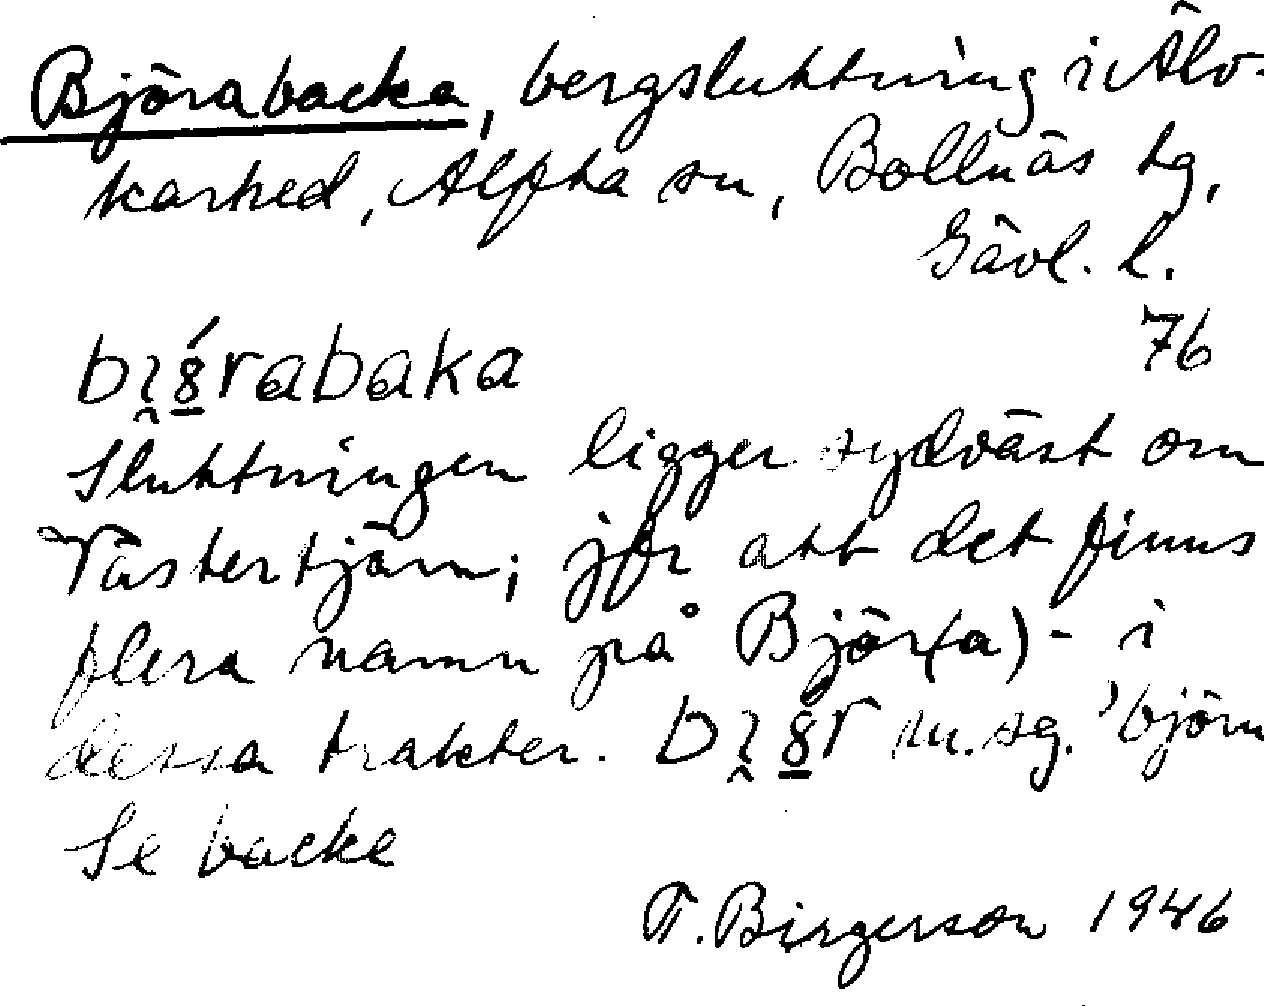 Björabacka, bergsluttning i Älv-
karhed, Alfta sn, Bollnäs tg,
Gävl. l.
76
bı̯8́rabaka
Sluttningen ligger sydväst om
Västertjärn; jfr att det finns
flera namn på Björ(a)- i
dessa trakter. bı̯8̱r m.sg. 'björn
Se backe
T. Birgerson 1946